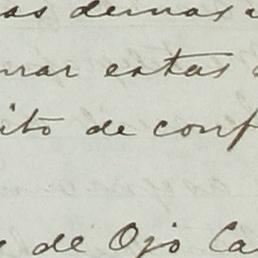 as demas a
rar estas
ito de conf
de Ojo Ca